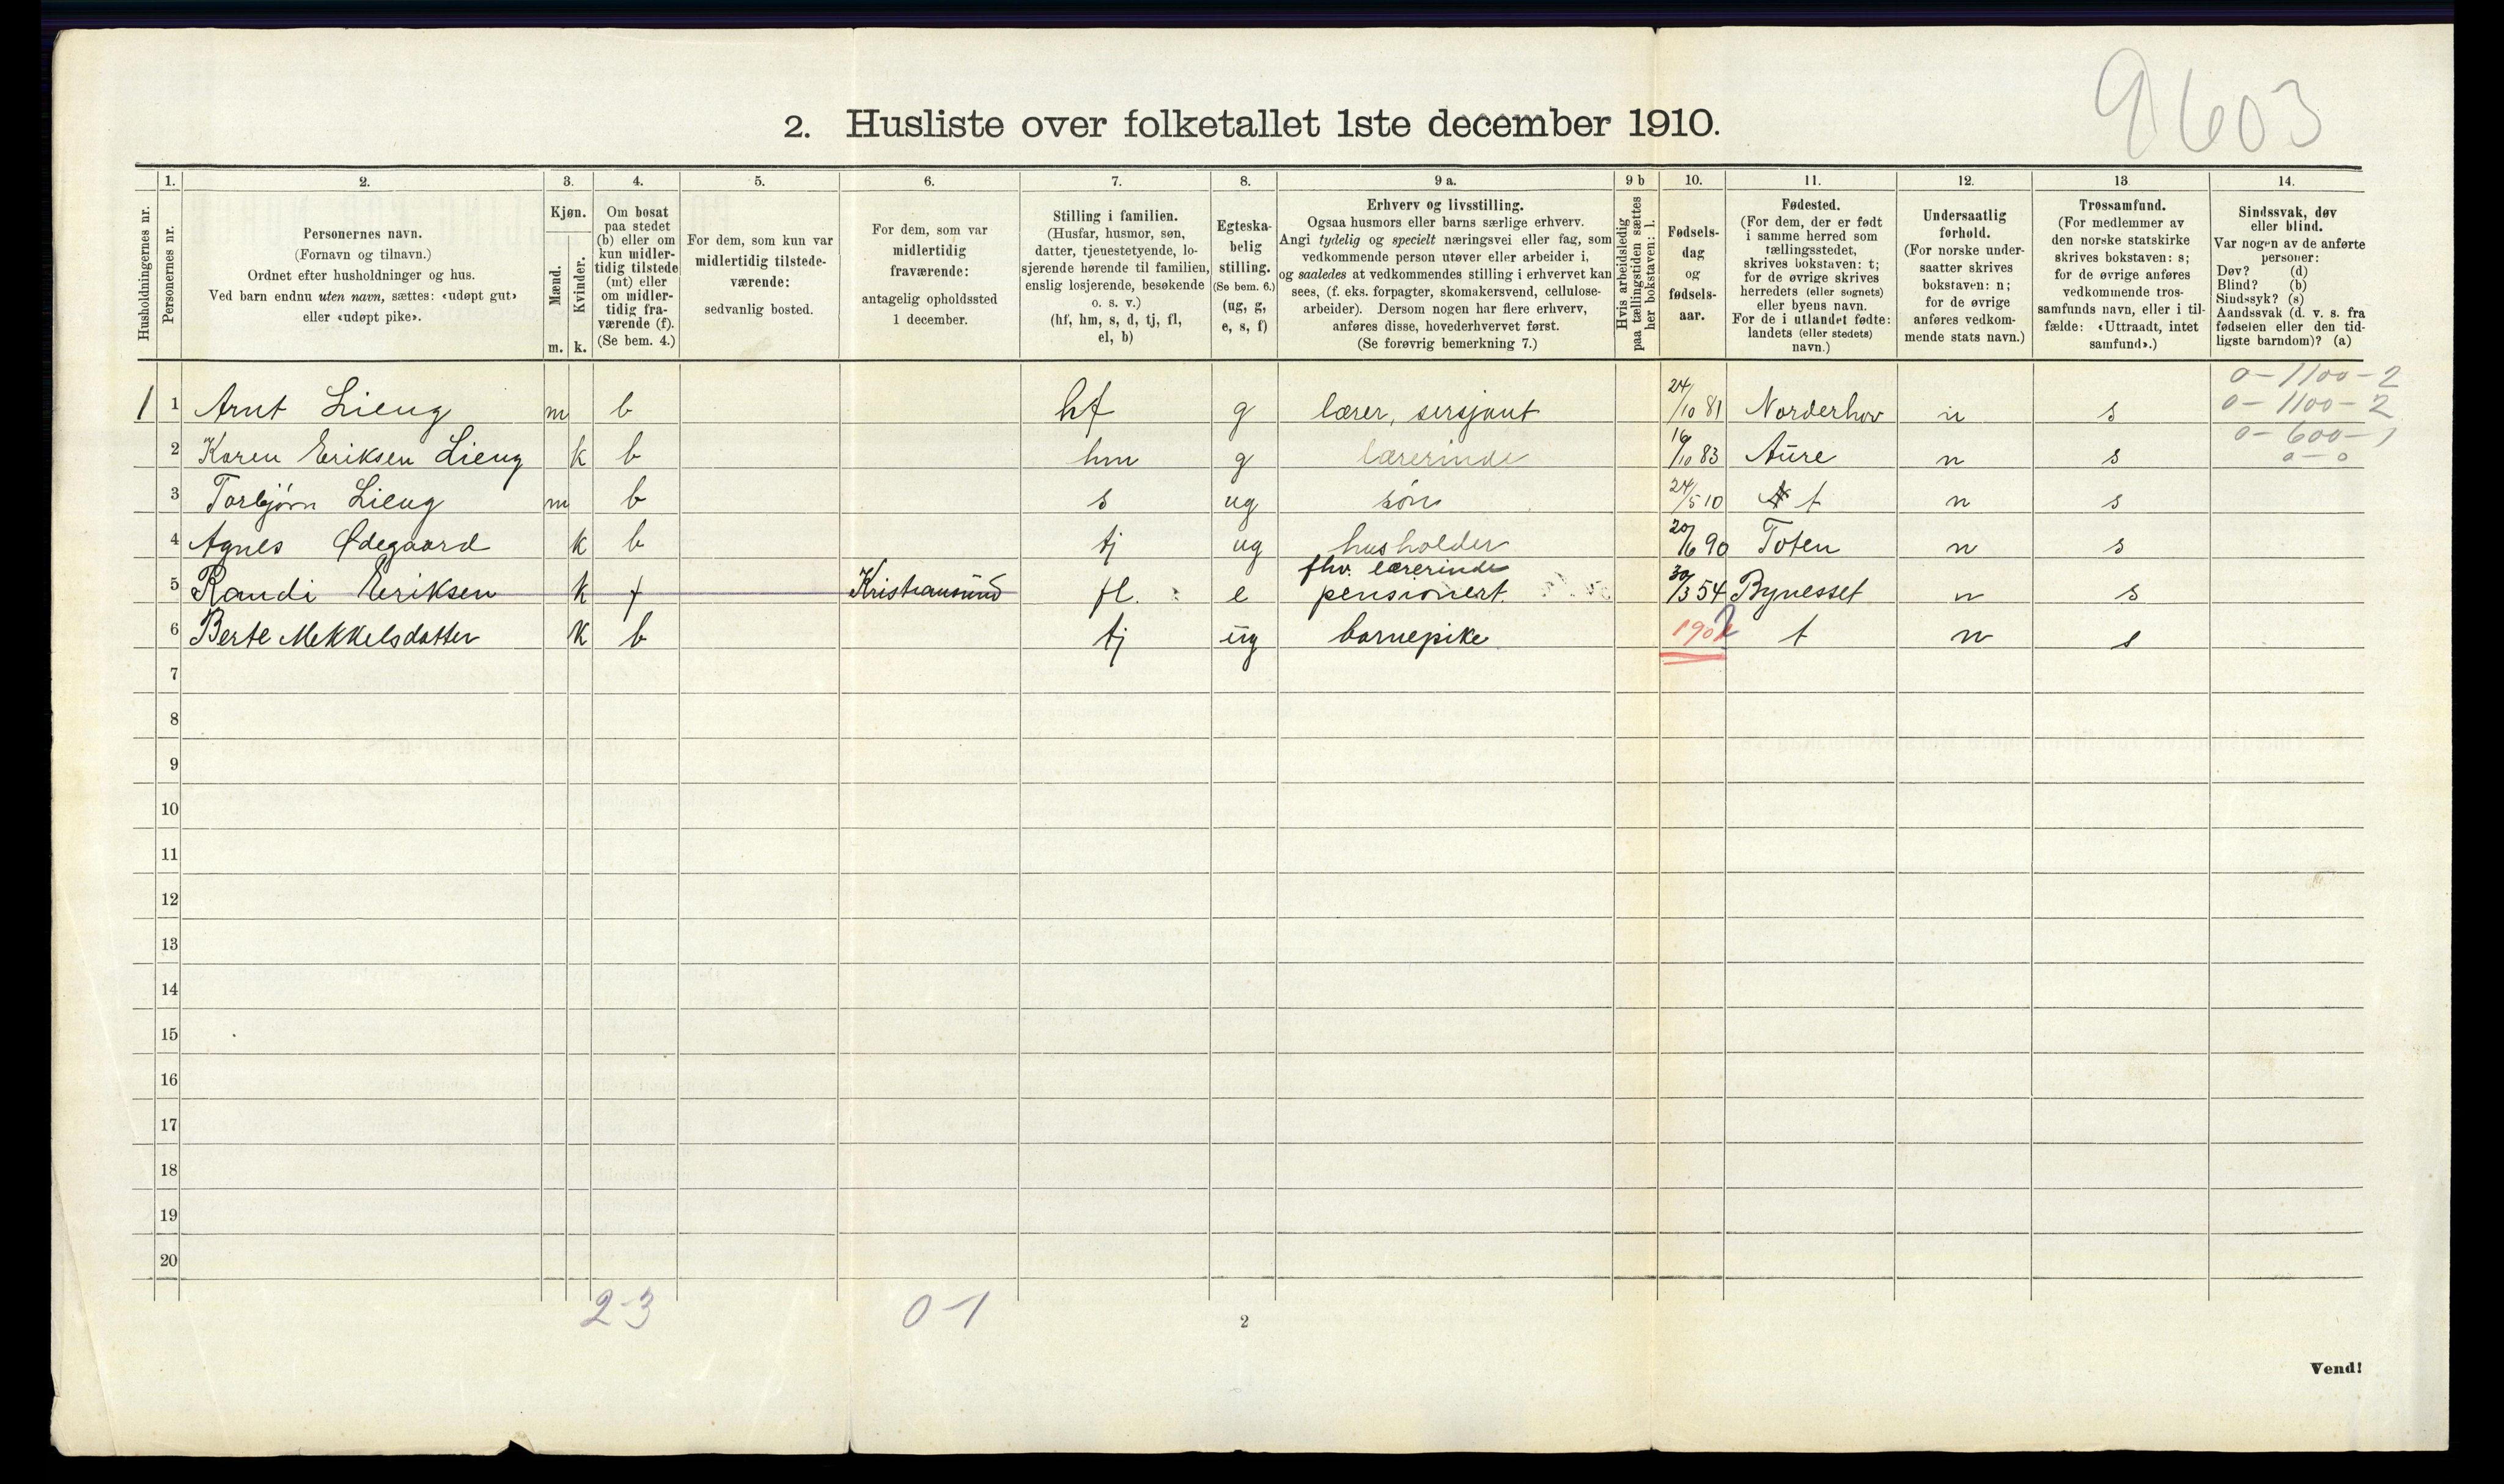 9603
2. Husliste over folketallet 1ste december 1910.
Husholdningernes nr.
1. Personernes nr.
2. Personernes navn.
(Fornavn og tilnavn.)
Ordnet efter husholdninger og hus.
Ved barn endnu uten navn, sættes: «udøpt gut»
eller «udøpt pike».
3. Kjøn.
Mænd. Kvinder.
m. k.
4. Om bosat
paa stedet
(b) eller om
kun midler-
tidig tilstede
(mt) eller
om midler-
tidig fra-
værende (f).
(Se bem. 4.)
5. For dem, som kun var
midlertidig tilstede-
værende:
sedvanlig bosted.
6. For dem, som var
midlertidig
fraværende:
antagelig opholdssted
1 december.
7. Stilling i familien.
(Husfar, husmor, søn,
datter, tjenestetyende, lo-
sjerende hørende til familien,
enslig losjerende, besøkende
o. s. v.)
(hf, hm, s, d, tj, fl,
el, b)
8. Egteska-
belig
stilling.
(Se bem. 6.)
(ug, g,
e, s, f)
9 a. Erhverv og livsstilling.
Ogsaa husmors eller barns særlige erhverv.
Angi tydelig og specielt næringsvei eller fag, som
vedkommende person utøver eller arbeider i,
og saaledes at vedkommendes stilling i erhvervet kan
sees, (f. eks. forpagter, skomakersvend, cellulose-
arbeider). Dersom nogen har flere erhverv,
anføres disse, hovederhvervet først.
(Se forøvrig bemerkning 7.)
9 b Hvis arbeidsledig
paa tællingstiden sættes
her bokstaven: l.
10. Fødsels-
dag
og
fødsels-
aar.
11. Fødested.
(For dem, der er født
i samme herred som
tællingsstedet,
skrives bokstaven: t;
for de øvrige skrives
herredets (eller sognets)
eller byens navn.
For de i utlandet fødte:
landets (eller stedets)
navn.)
12. Undersaatlig
forhold.
(For norske under-
saatter skrives
bokstaven: n;
for de øvrige
anføres vedkom-
mende stats navn.)
13 Trossamfund.
(For medlemmer av
den norske statskirke
skrives bokstaven: s;
for de øvrige anføres
vedkommende tros-
samfunds navn, eller i til-
fælde: «Uttraadt, intet
samfund».)
14. Sindssvak, døv
eller blind.
Var nogen av de anførte
personer:
Døv? (d)
Blind? (b)
Sindssyk? (s)
Aandssvak (d. v. s. fra
fødselen eller den tid-
ligste barndom)? (a)
0-1100-2
1 1 Arnt Lieng m b hf g lærer, sersjant 24/10 81 Norderhov n s 0-1100-2
0-600-1
2 Karen Eriksen Lieng k b hm g lærerinde 16/10 83 Aure n s 0-0
3 Torbjørn Lieng m b s ug søn 24/5 10 t n s
4 Agnes Ødegaard k b tj ug husholder 20/6 90 Toten n s
fhv. lærerinde
5 Randi Eriksen k f Kristiansund fl. e pensionert. 30/3 54 Bynesset n s
6 Berte Mekkelsdatter k b tj ug barnepike t n s
7
8
9
10
11
12
13
14
15
16
17
18
19
20
2-3 0-1
2
Vend!